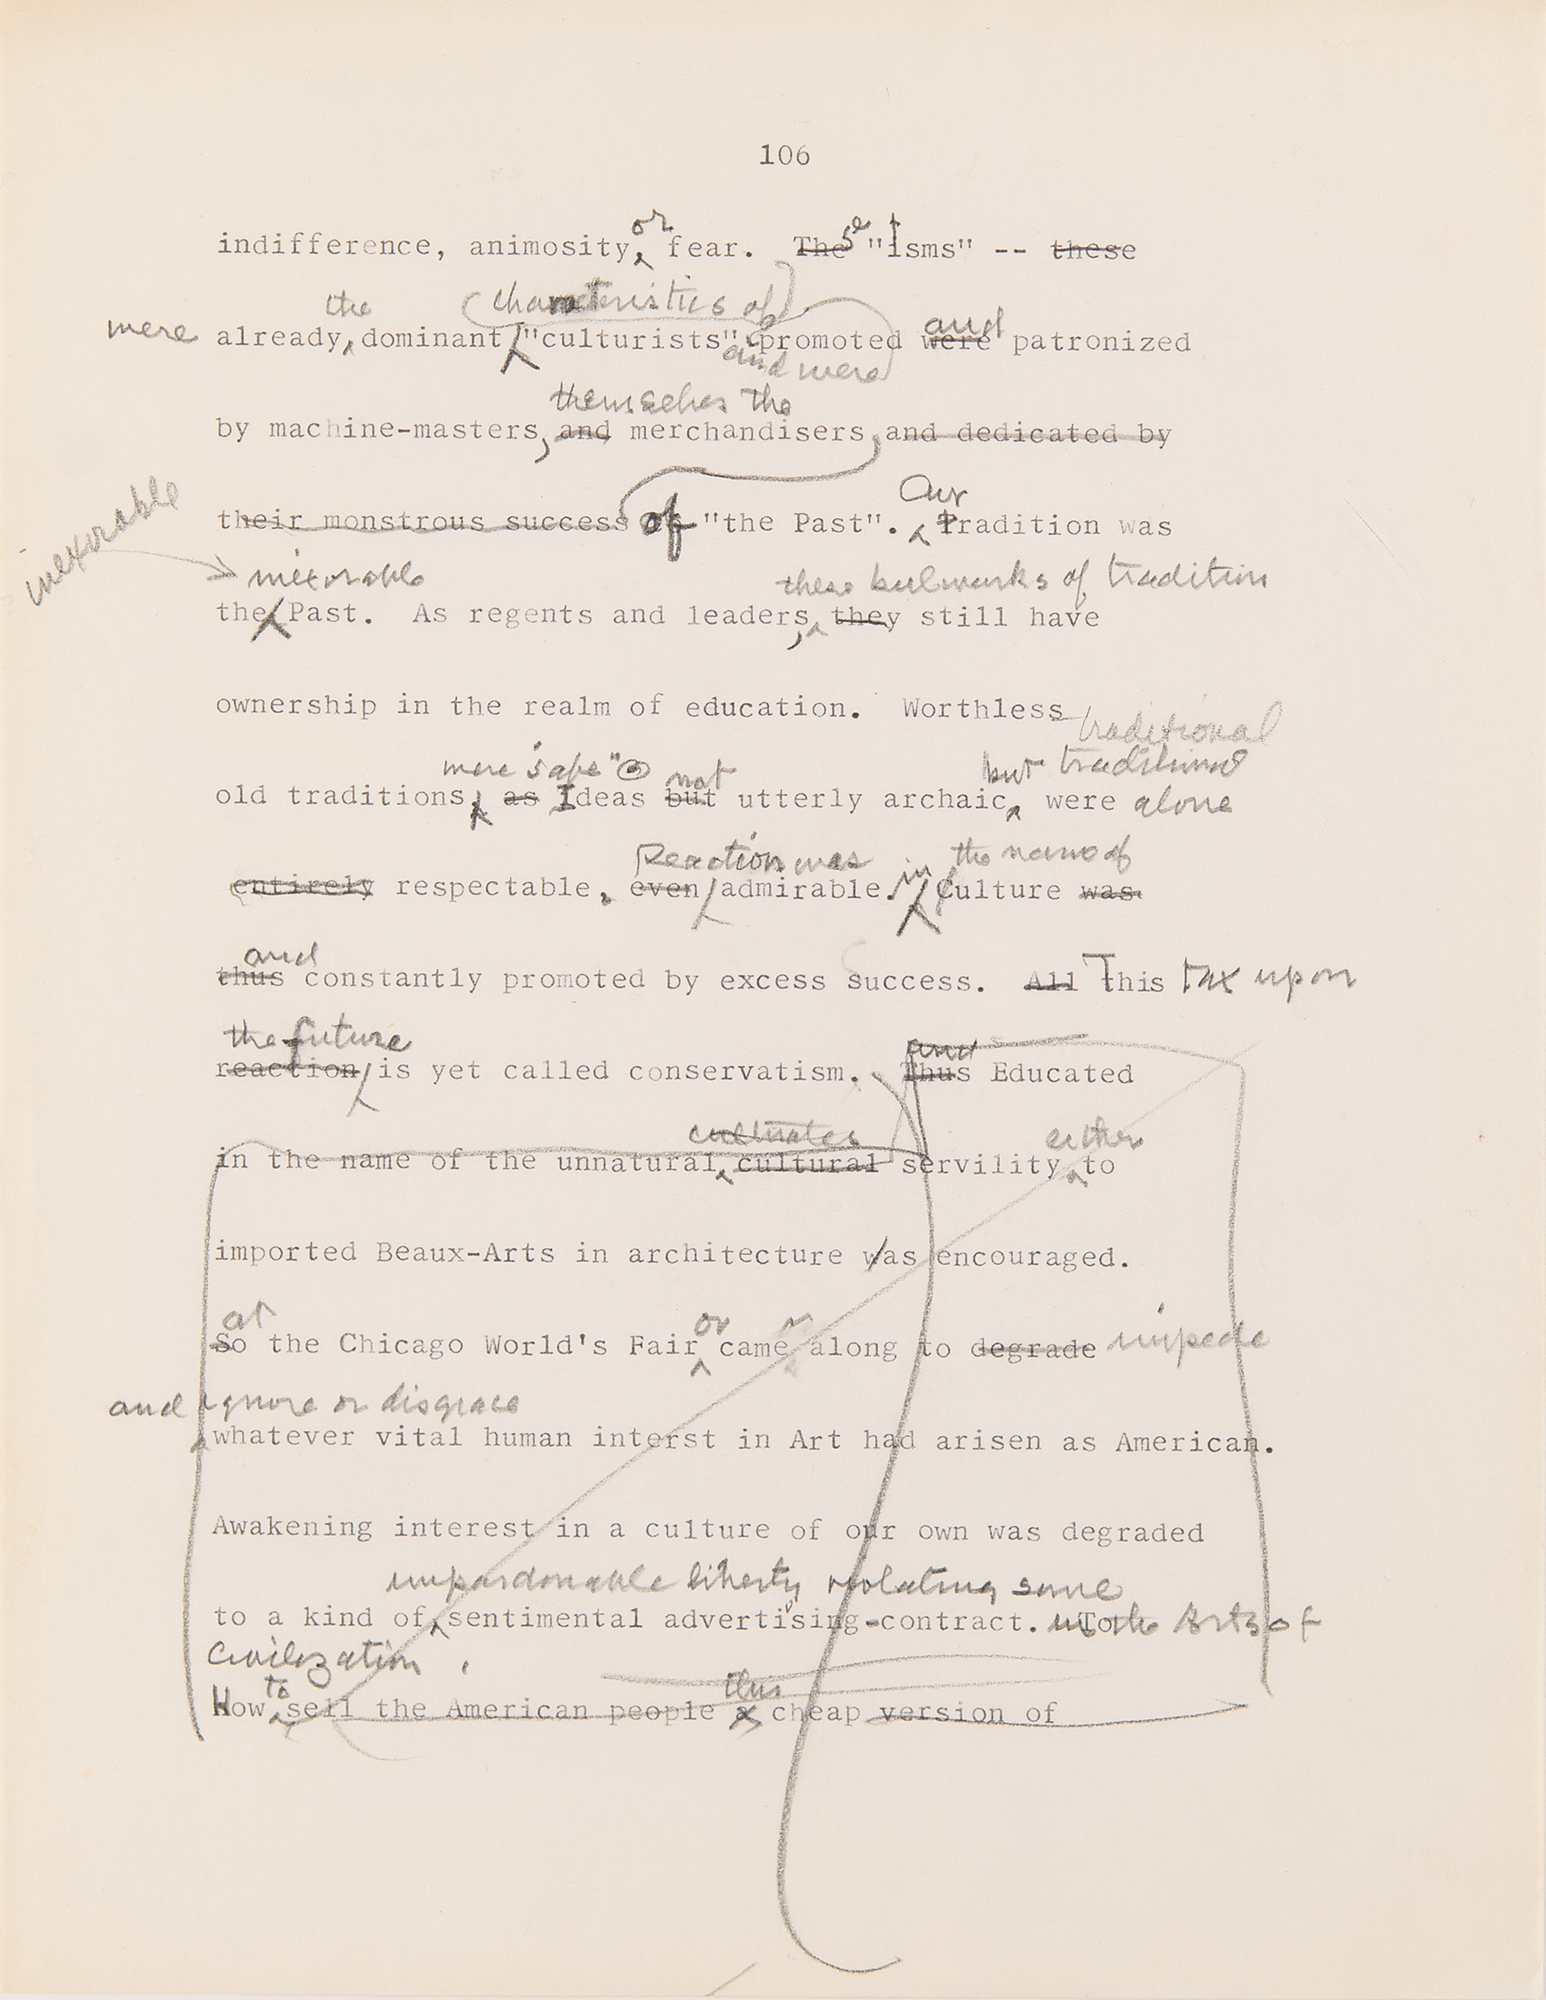 106
or
indifference, animosity, fear. These "Isms" -- these
the (characteristics of)
were already, dominant "culturists" promoted were and patronized
and were
themselves the
by machine-masters, and merchandisers, and dedicated by
their monstrous success of "the Past". Our Tradition was
inexorable
inexorable these bulwarks of tradition
the Past. As regents and leaders, they still have
ownership in the realm of education. Worthless
traditional
mere "safe" not but traditional
old traditions, as Ideas but utterly archaic, were alone
Reaction was in the name of
entirely respectable, even admirable. Culture was
and
thus constantly promoted by excess success. All This tax upon
the future and
reaction is yet called conservatism. Thus Educated
either
in the name of the unnatural, cultural servility to
imported Beaux-Arts in architecture was encouraged.
at or
So the Chicago World's Fair came along to degrade impede
and ignore or disgrace
whatever vital human interst in Art had arisen as American.
Awakening interest in a culture of our own was degraded
unpardonable liberty violating some
to a kind of sentimental advertising-contract. To the Arts of
Civilization.
to this
How sell the American people a cheap version of